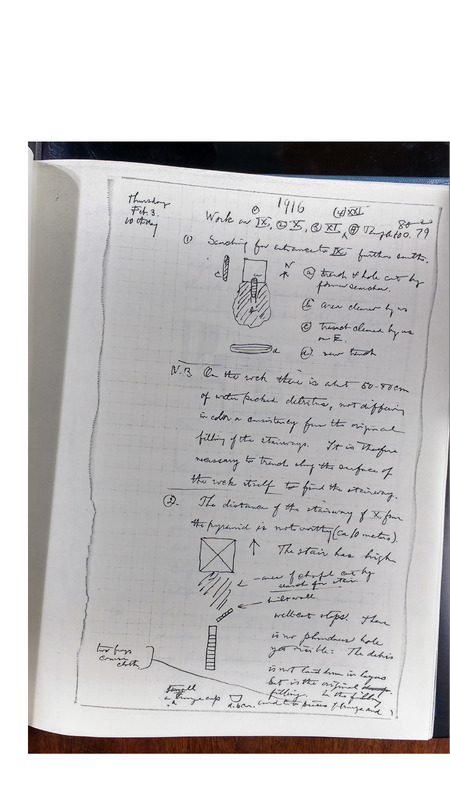 1916
Thursday
Feb. 3.
Work on IX, ② X, ③ XI, ④ XXI
① Searching for entrance to IX further south.
N
C
a
d
ⓐ trench & hole cut by
former searcher.
ⓑ area cleared by us
ⓒ trench cleared by us
on E.
ⓓ new trench
N.B. On the rock there is about 60-80 cm
of water packed detritus, not differing
in color or consistency from the original
filling of the stairways. It is therefore
necessary to trench along the surface of
the rock itself to find the stairway.
②. The distance of the stairway of X from
the pyramid is not worthy (ca 10 metres).
The stair has high
area of cut by
search for stair
built wall
well cut steps. There
is no plunderers hole
yet visible. The debris
is not laid down in layers
but is the original
filling. In the filling
two frags
coarse
cloth
small
bronze cup and two pieces of bronze and